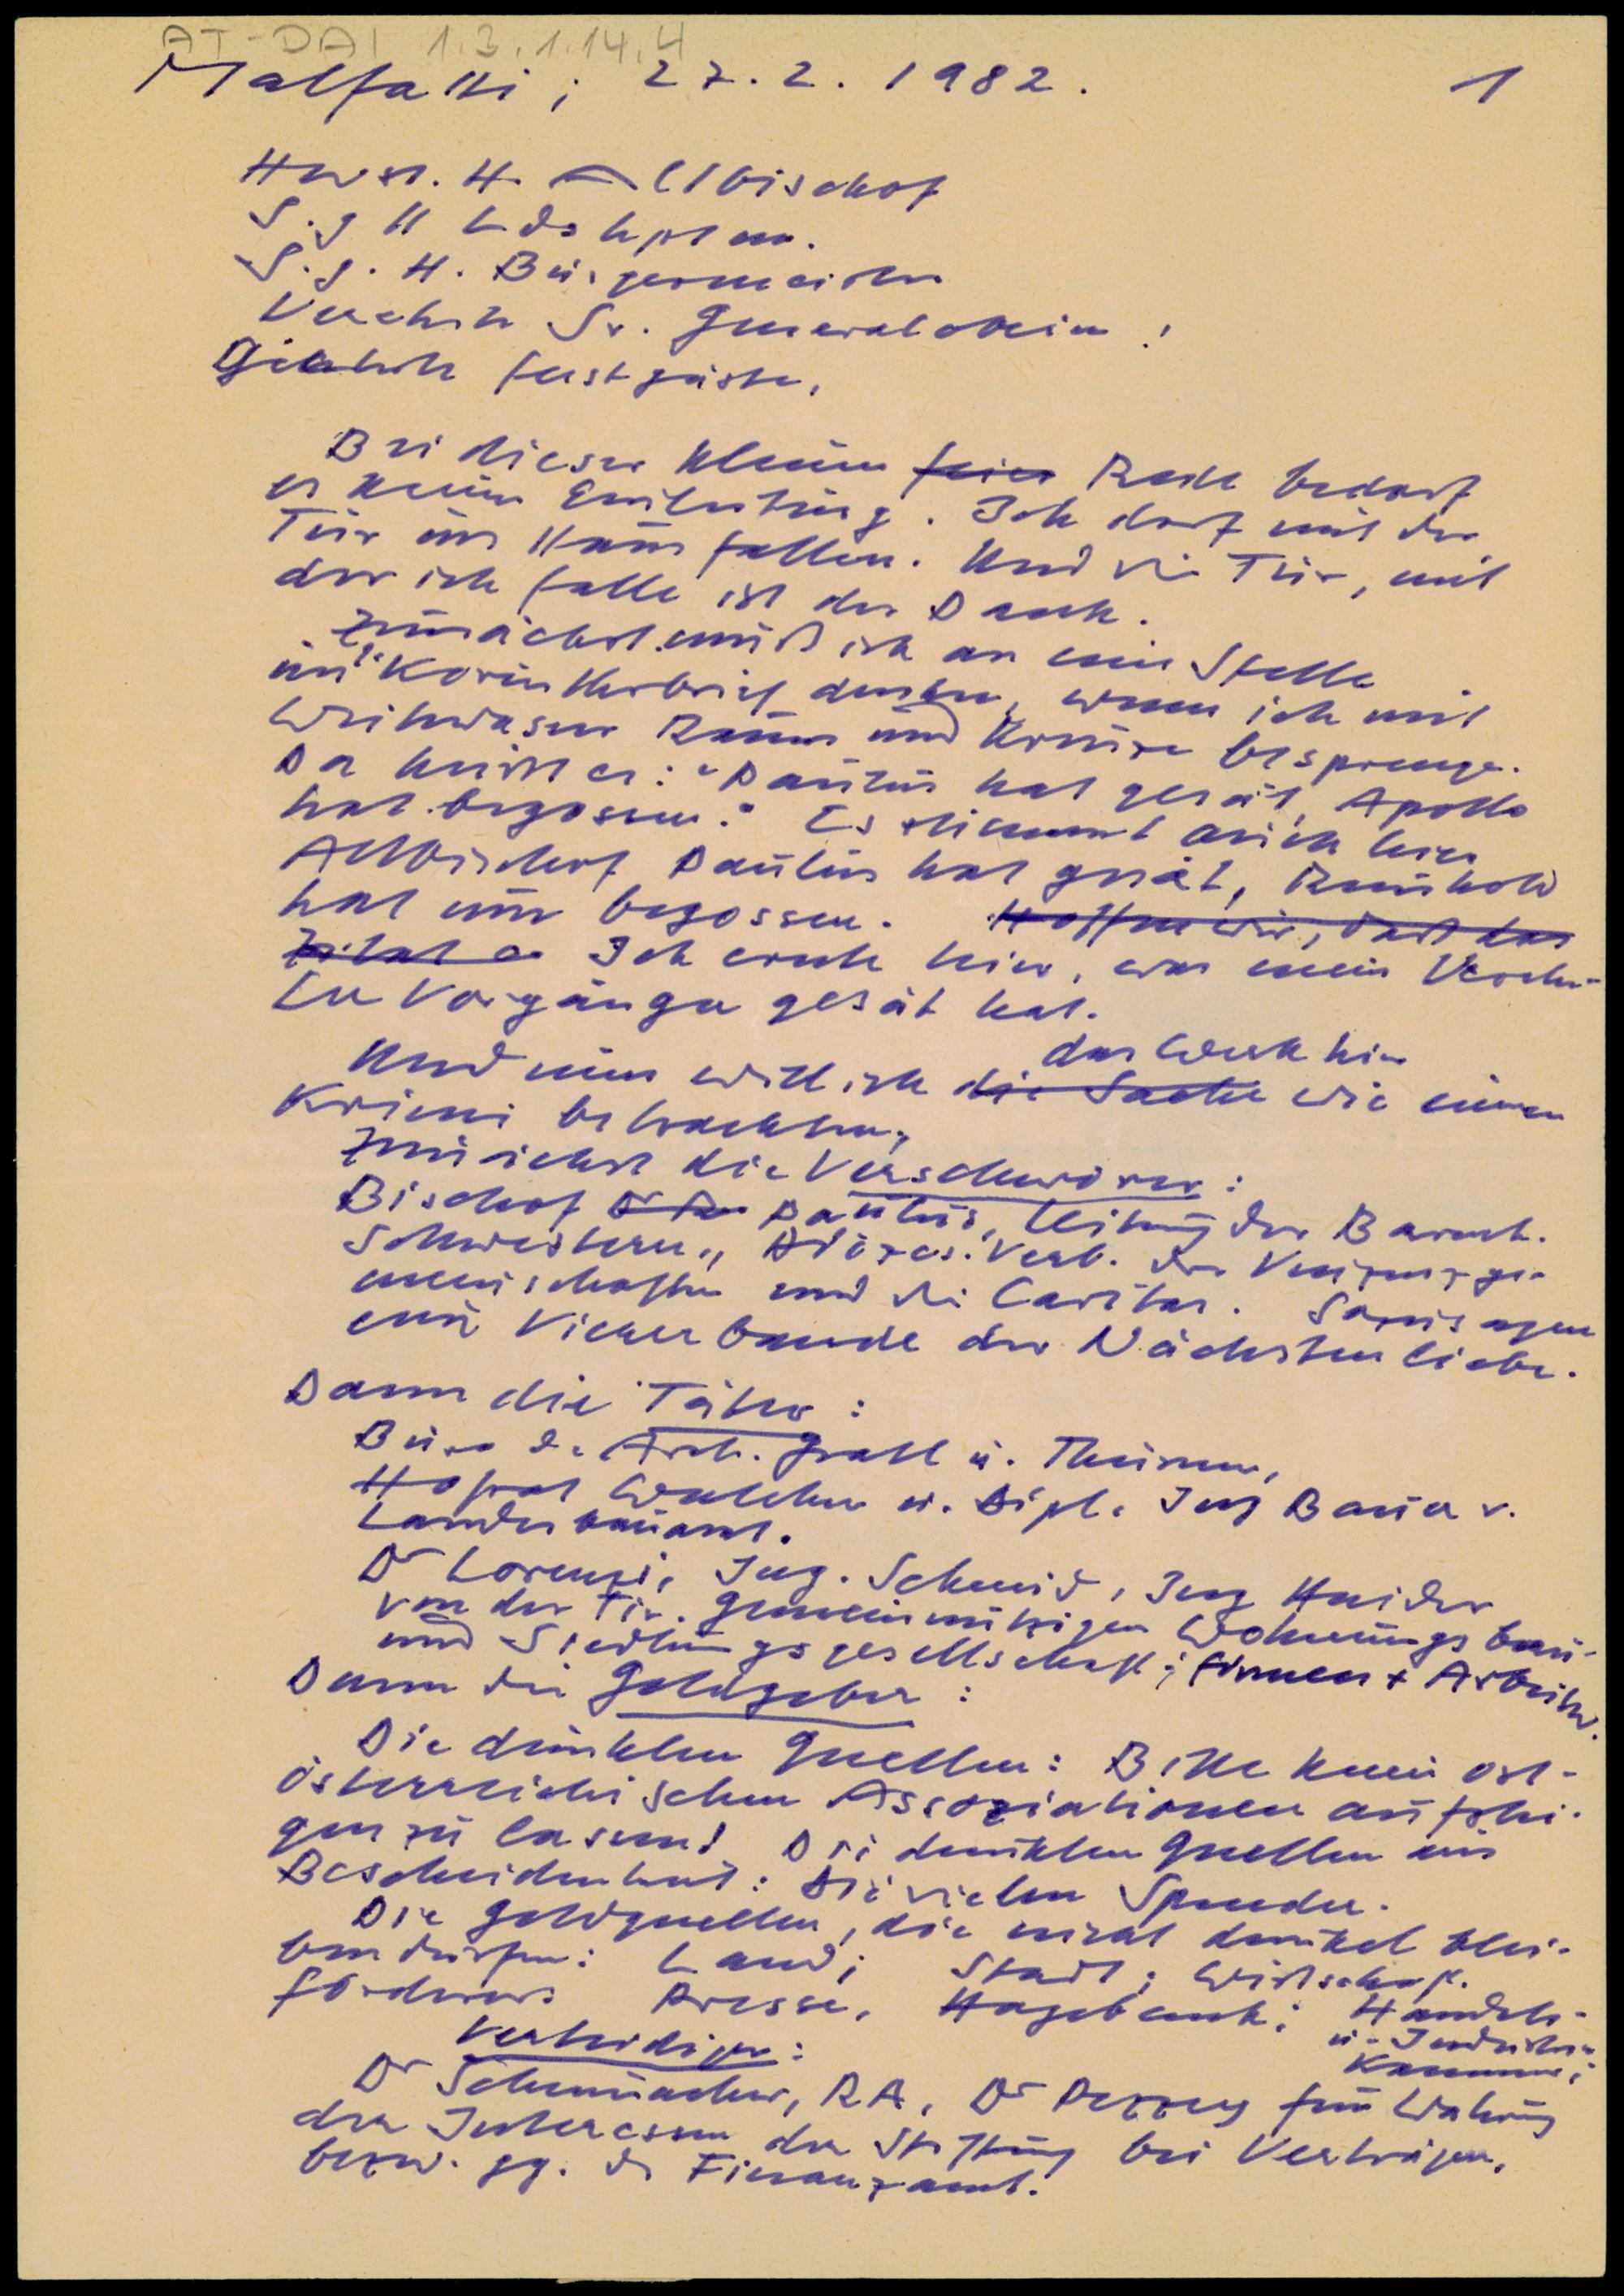 AT-DAI 1.3.1.14.4
Malfatti; 27.2.1982. 1
Hwst. H. Altbischof
S.g H Ldshptm.
S.g. H. Bürgermeister
Verehrte Sr. Generaloberin!
Geehrte Festgäste,
Bei dieser kleinen feier Rede bedarf
es keiner Einleitung. Ich darf mit der
Tür ins Haus fallen. Und die Tür, mit
der ich falle ist der Dank.
Zunächst muß ich an eine Stelle
im Korintherbrief denken, wenn ich mit
Weihwasser Räume und Kreuze besprenge.
Da heißt es: "Paulus hat gesät, Apollo
hat begossen." Es stimmt auch hier
Altbischof Paulus hat gesät, Reinhold
hat nur begossen. Hoffen wir, daß das
Zitat Ich ernte hier, was mein Verehr-
ter Vorgänger gesät hat.
das Werk hier
Und nun will ich die Sache wie einen
Krimi betrachten,
Zunächst die Verschwörer:
Bischof Paulus, Leitung der Barmh.
Schwestern, Diözes. Verb. der Vinzenzge-
meinschaften und die Caritas. Sozusagen
eine Viererbande der Nächstenliebe.
Dann die Täter:
Büro d. Arch. Gratl u. Thurner,
Hofrat Walcher u. Dipl. Ing Bauer v.
Landesbauamt.
Dr Lorenzi, Ing. Schmid, Ing Haider
von der Fir. Gemeinnützigen Wohnungsbau-
und Siedlungsgesellschaft; Firmen + Arbeiter.
Dann die Geldgeber:
Die dunklen Quellen: Bitte keine ost-
österreichischen Assoziationen aufstei-
gen zu lassen! Die dunklen Quellen aus
Bescheidenheit: Die vielen Spender.
Die Geldquellen, die nicht dunkel blei-
ben dürfen: Land; Stadt; Wirtschaft.
förderer: Presse, Hagebank; Handels-
u. Industrie-
Kammer;
Verteidiger:
Dr Schumacher, RA, Dr Pezzey für Wahrung
der Interessen der Stiftung bei Verträgen,
bezw. gg. d. Finanzamt.